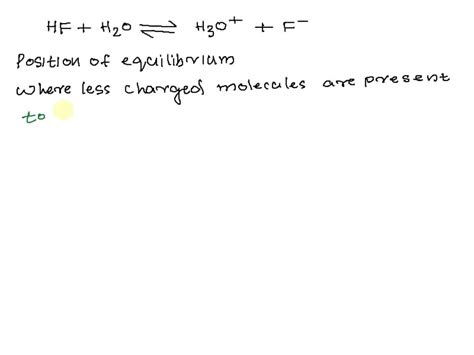 HF + H₂O ⇌ H₃O⁺ + F⁻
Position of equilibrium
where less charged molecules are present
to